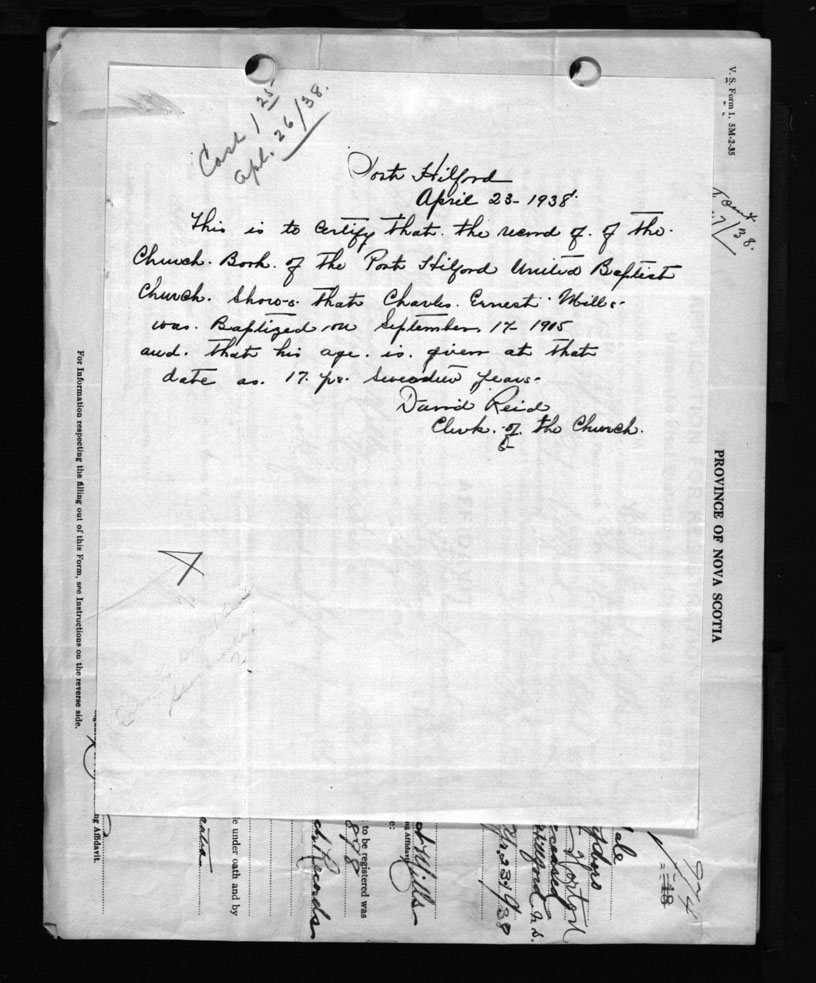 Cash 1 25
Apl. 26/38.
Port Hilford
April 23 - 1938
This is to Certify that the record of. of the
Church. Book. of the Port Hilford United Baptist
Church. Shows that Charles. Ernest Mills
was. Baptized on September 17 1905
and. that his age. is. given at that
date as. 17. yrs. Seventeen years
David Reid
Clerk. of the Church.
V. S. Form 1. 5M-2-35
7/38.
PROVINCE OF NOVA SCOTIA
For Information respecting the filling out of this Form, see Instructions on the reverse side.
ng Affidavit.
e under oath and by
d. Records
to be registered was
e:
Mills
Horton
deceased
N.S.
23/1938
924
18